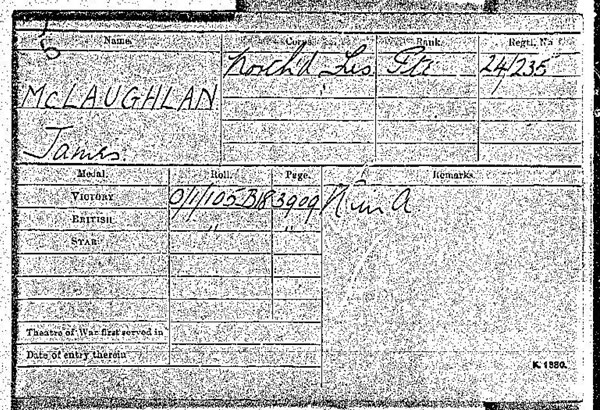 Name. Corps. Rank. Regtl. No
McLAUGHLAN North'd Fus Pte 24/235
James.
Medal. Roll. Page. Remarks.
VICTORY O/1/105 B18 3909
BRITISH " "
STAR
Theatre of War first served in
Date of entry therein
K. 1380.